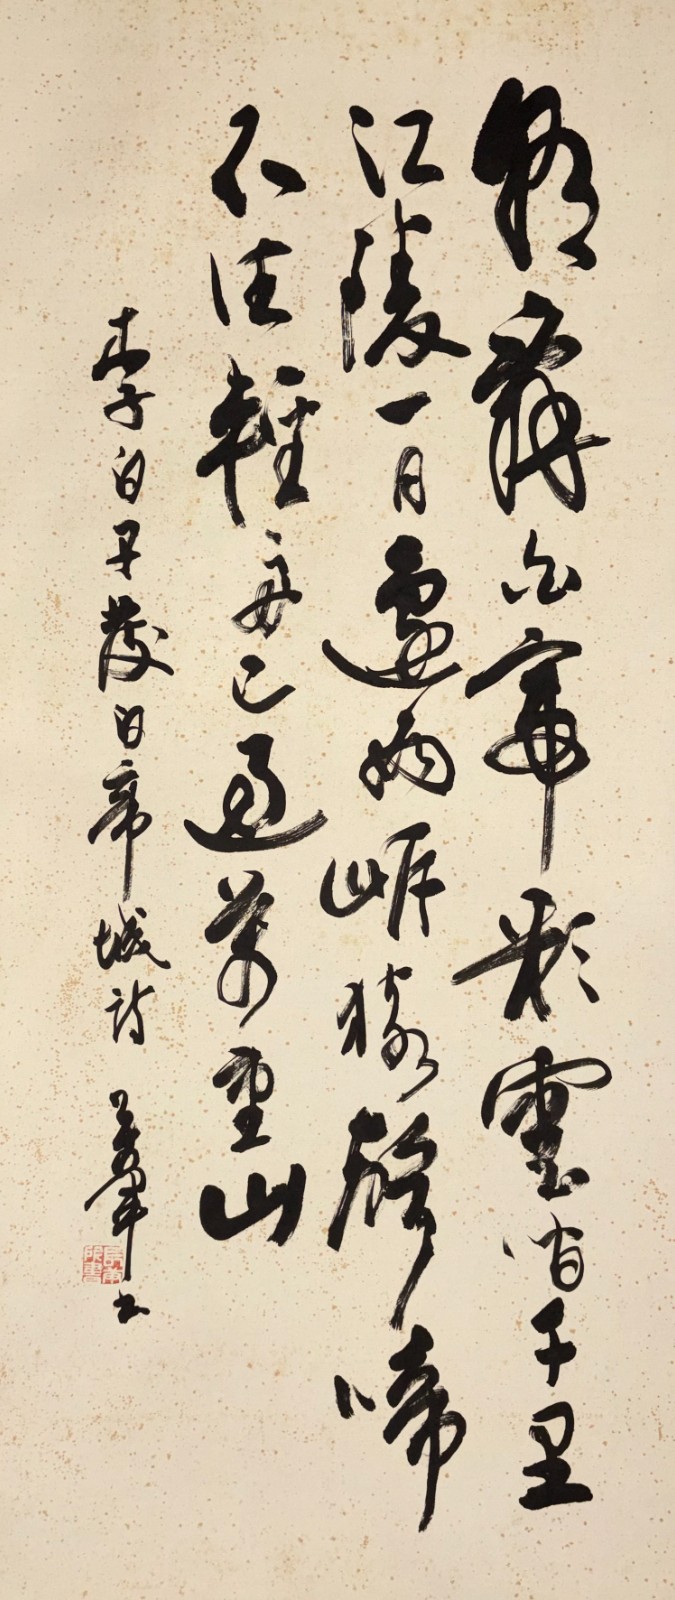 朝辭白帝彩雲間千里
江陵一日還兩岸猿聲啼
不住輕舟已過萬重山
李白早發白帝城詩 书